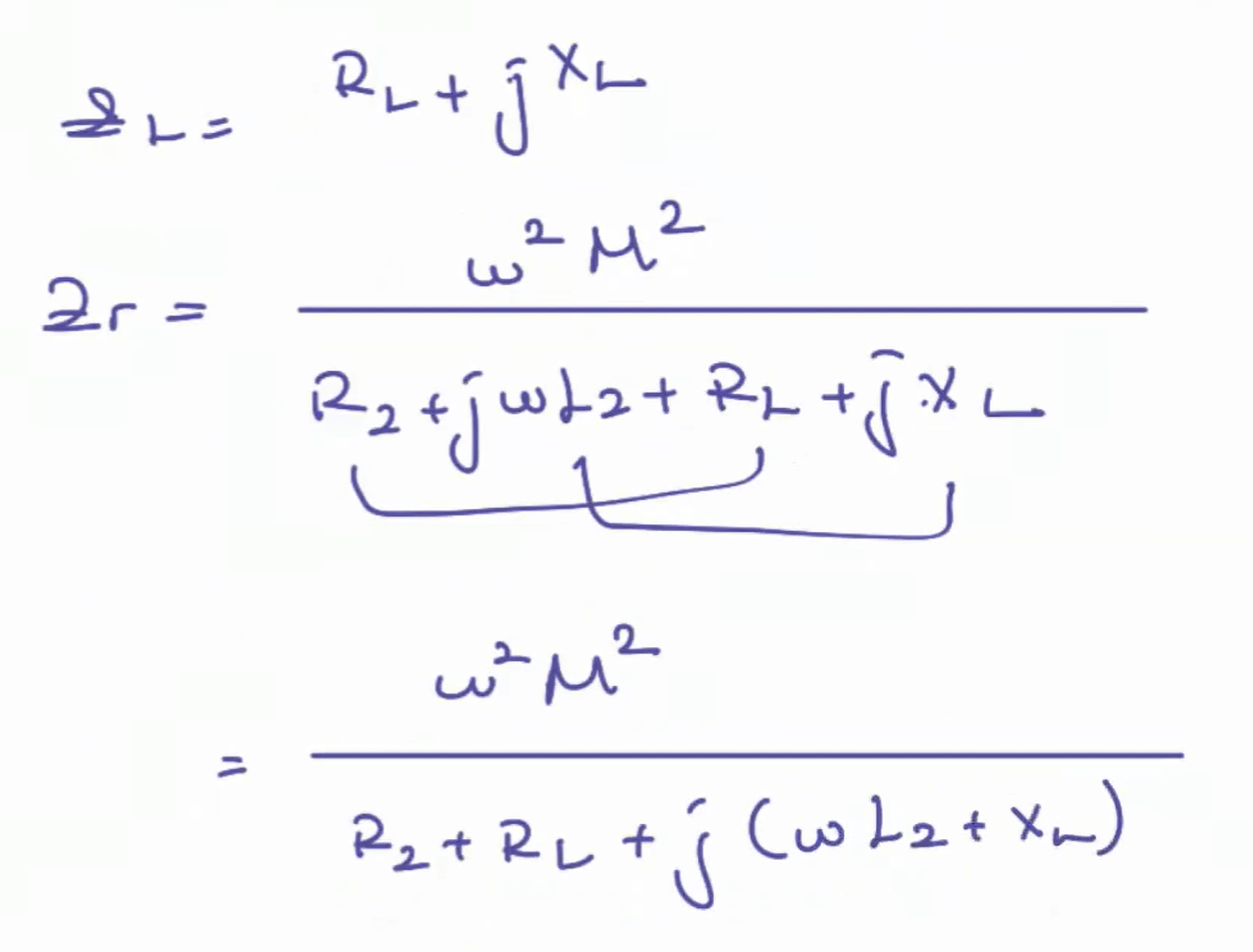 Z_L = R_L + jX_L
Z_r = ω²M² / (R_2 + jωL_2 + R_L + jX_L)
= ω²M² / (R_2 + R_L + j(ωL_2 + X_L))